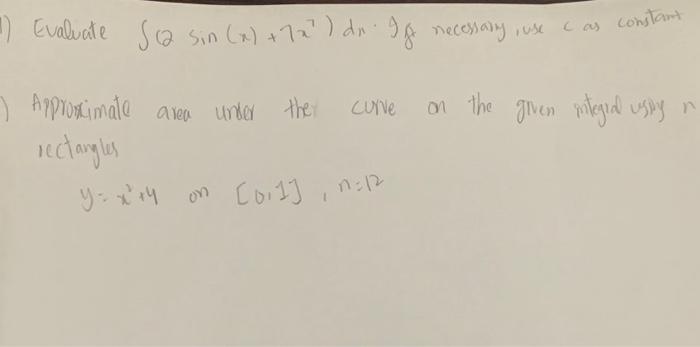 1) Evaluate ∫(2 sin(x) + 7x⁷) dx. If necessary, use c as constant
) Approximate area under the curve on the given integral using n
rectangles
y = x² + 4 on [0,1], n=12